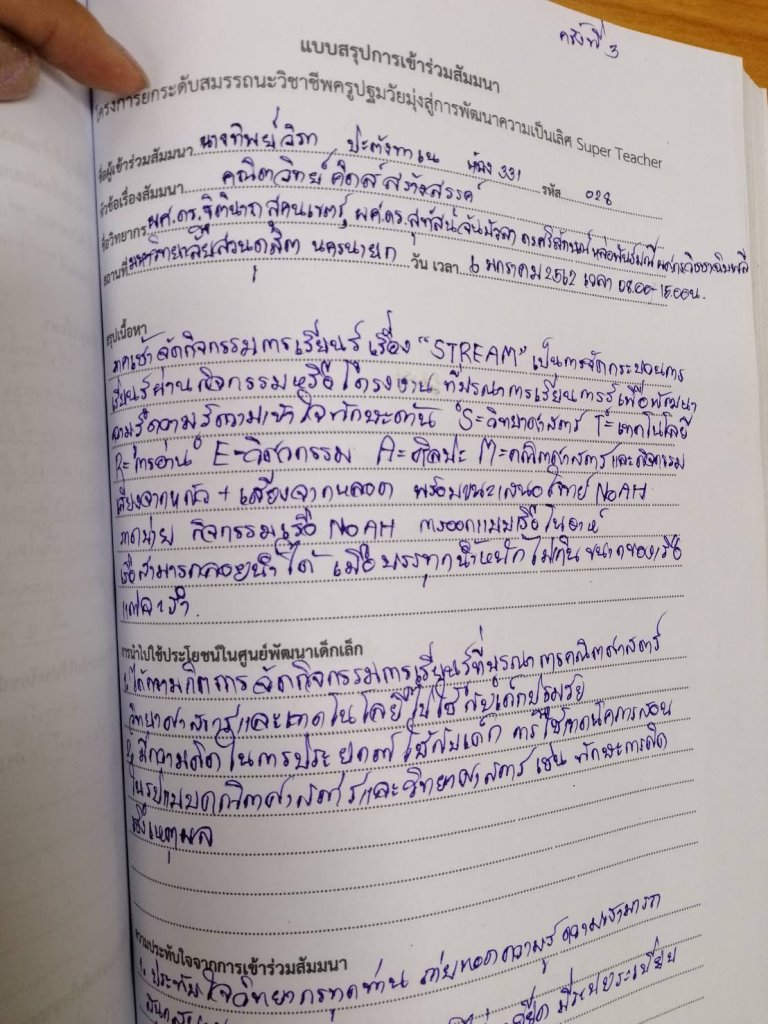 ครั้งที่ 3
แบบสรุปการเข้าร่วมสัมมนา
โครงการยกระดับสมรรถนะวิชาชีพครูปฐมวัยมุ่งสู่การพัฒนาความเป็นเลิศ Super Teacher
ชื่อผู้เข้าร่วมสัมมนา นางทิพย์วิภา ห้อง 331 รหัส 028
หัวข้อเรื่องสัมมนา คณิตวิทย์คิดส์สร้างสรรค์
ชื่อวิทยากร ผศ.ดร.ฐิตินาถ สุคนเขตร์ ผศ.ดร.สุทัสน์
สถานที่ มหาวิทยาลัยสวนดุสิต นครนายก วัน เวลา 6 มกราคม 2562 เวลา 08.00-15.00น.
สรุปเนื้อหา
ภาคเช้า จัดกิจกรรมการเรียนรู้ เรื่อง "STREAM" เป็นการจัดกระบวนการ
เรียนรู้ผ่านกิจกรรมหรือโครงงาน ที่บูรณาการเรียนการรู้เพื่อพัฒนา
ความรู้ความเข้าใจทักษะด้าน S=วิทยาศาสตร์ T=เทคโนโลยี
R=การอ่าน E=วิศวกรรม A=ศิลปะ M=คณิตศาสตร์ และกิจกรรม
เสียงจาก + เสียงจากหลอด พร้อมขนะเสนอโจทย์ NOAH
ภาคบ่าย กิจกรรมเรือ NOAH การออกแบบเรือโนอาห์
เรือสามารถลอยน้ำได้ เมื่อบรรทุกน้ำหนักไม่เกินขนาดของเรือ
แต่ละลำ.
การนำไปใช้ประโยชน์ในศูนย์พัฒนาเด็กเล็ก
1. ได้ความคิดการจัดกิจกรรมการเรียนรู้ที่บูรณาการคณิตศาสตร์
วิทยาศาสตร์และเทคโนโลยีไปใช้กับเด็กปฐมวัย
2. มีความคิดในการประยุกต์ใช้กับเด็ก การใช้เทคนิคการสอน
ในรูปแบบคณิตศาสตร์และวิทยาศาสตร์ เช่น ทักษะการคิด
เชิงเหตุผล
ความประทับใจจากการเข้าร่วมสัมมนา
1. ประทับใจวิทยากรทุกท่าน ถ่ายทอดความรู้ ความสามารถ
มีระเบียบ